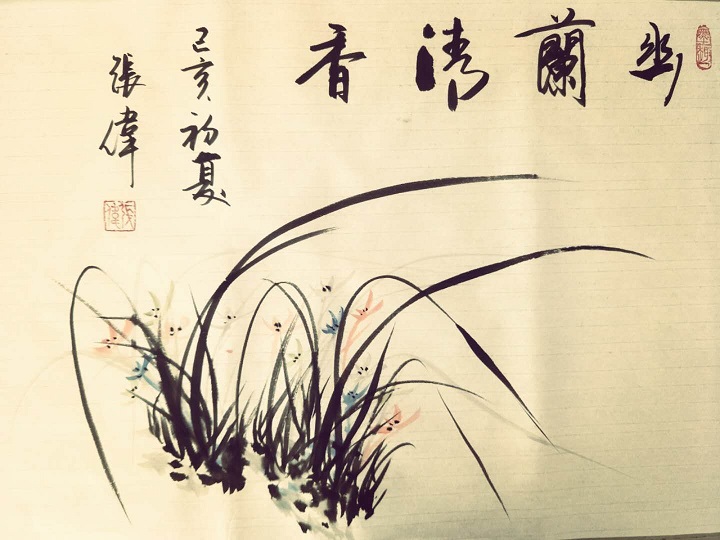 幽蘭清香
己亥初夏
張偉
張偉